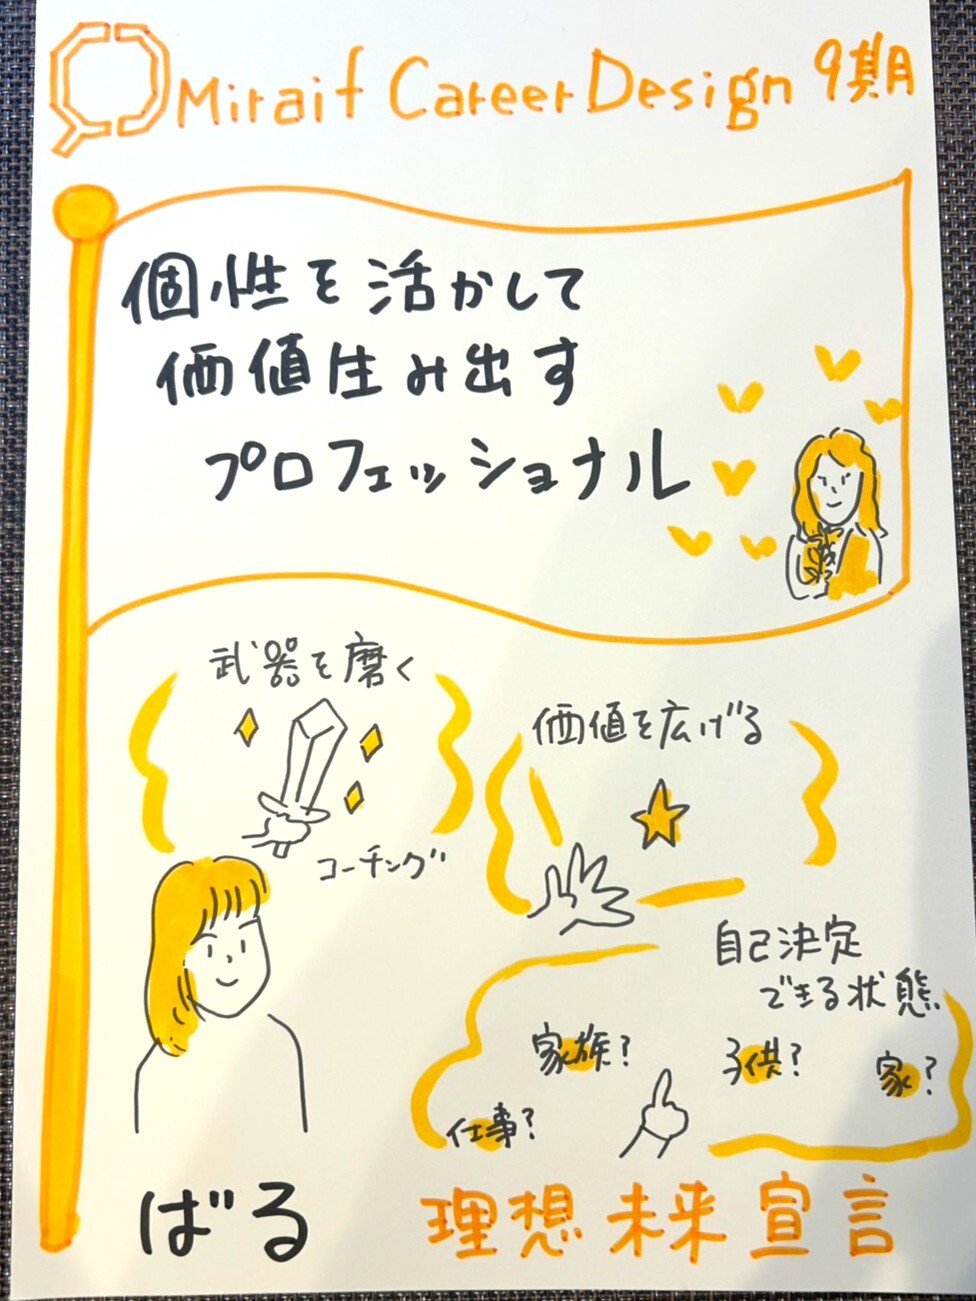 Miraif Career Design 9期
個性を活かして
価値生み出す
プロフェッショナル
武器を磨く
コーチング
価値を広げる
自己決定
できる状態
家族?
子供?
家?
仕事?
ばる
理想未来宣言